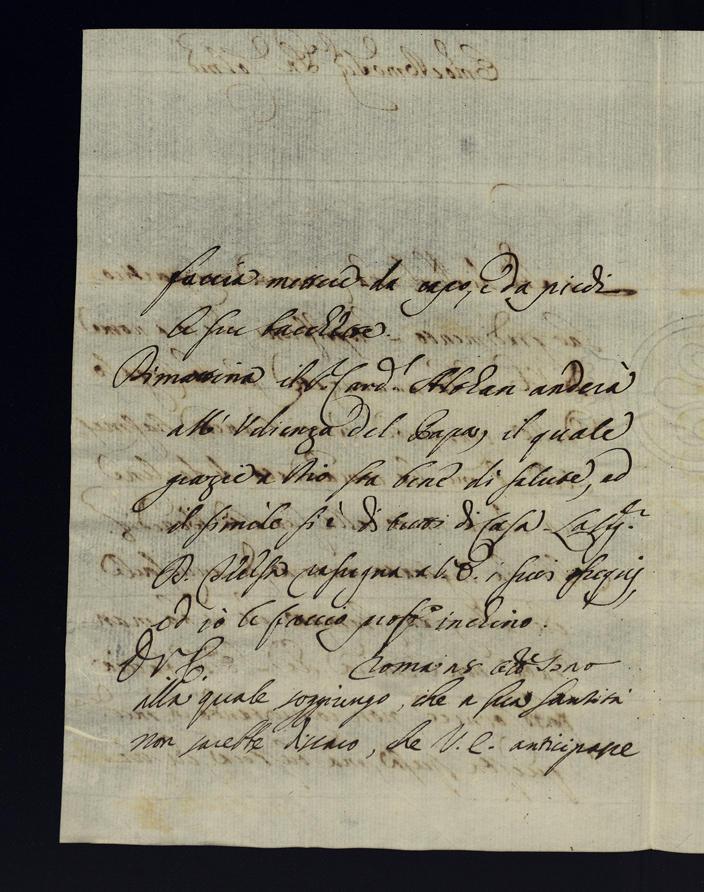 faccia mettere da capo, e da piedi
le sue bacchette.
Dimattina il S. Card.l Alban anderà
all' Udienza del Papa, il quale
grazie a Dio sta bene di salute, ed
il simile si è di tutti di Casa. La Sig.ra
D. rasegna a V. E. i suoi ossequij,
ed io le faccio prof.o inchino.
D. V. E. Roma
alla quale soggiungo, che a sua Santità
non sarebbe discaro, che V. E. anticipasse